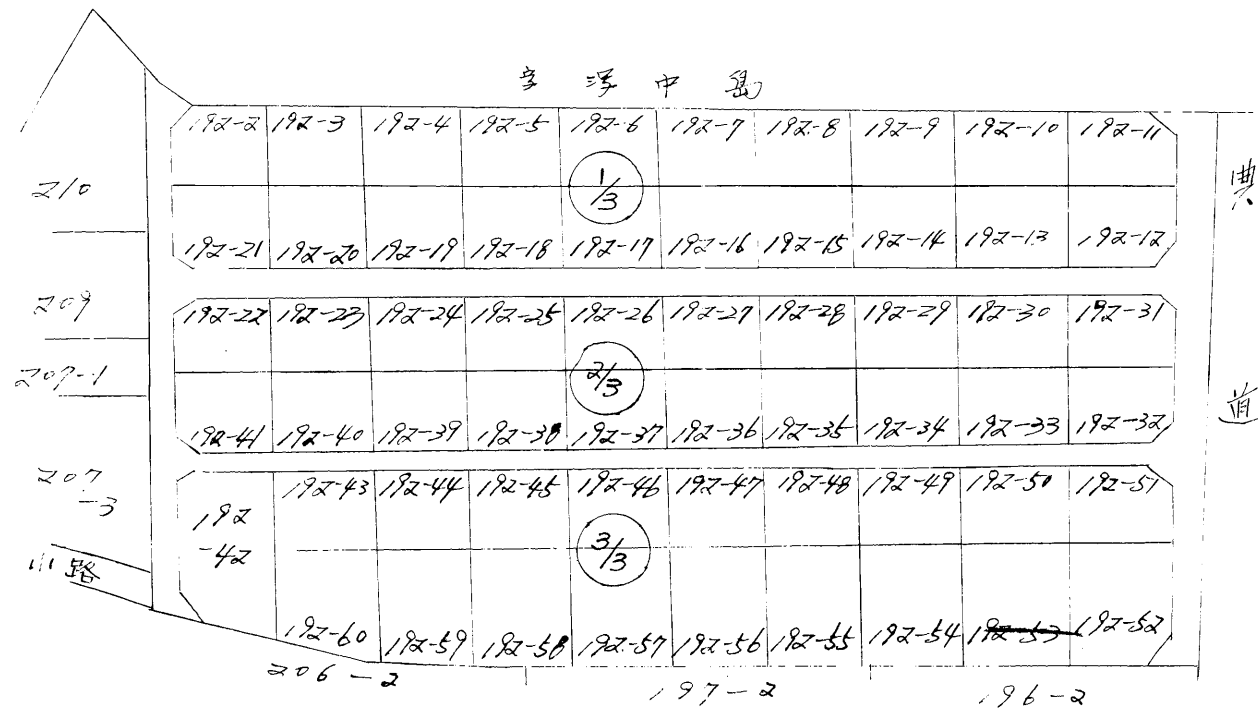 字 浮 中 島
192-2 192-3 192-4 192-5 192-6 192-7 192-8 192-9 192-10 192-11
210
1/3
農
192-21 192-20 192-19 192-18 192-17 192-16 192-15 192-14 192-13 192-12
209
192-22 192-23 192-24 192-25 192-26 192-27 192-28 192-29 192-30 192-31
207-1
2/3
道
192-41 192-40 192-39 192-38 192-37 192-36 192-35 192-34 192-33 192-32
207
-3
192-43 192-44 192-45 192-46 192-47 192-48 192-49 192-50 192-51
192
-42
3/3
小路
192-60 192-59 192-58 192-57 192-56 192-55 192-54 192-53 192-52
206-2
197-2
196-2